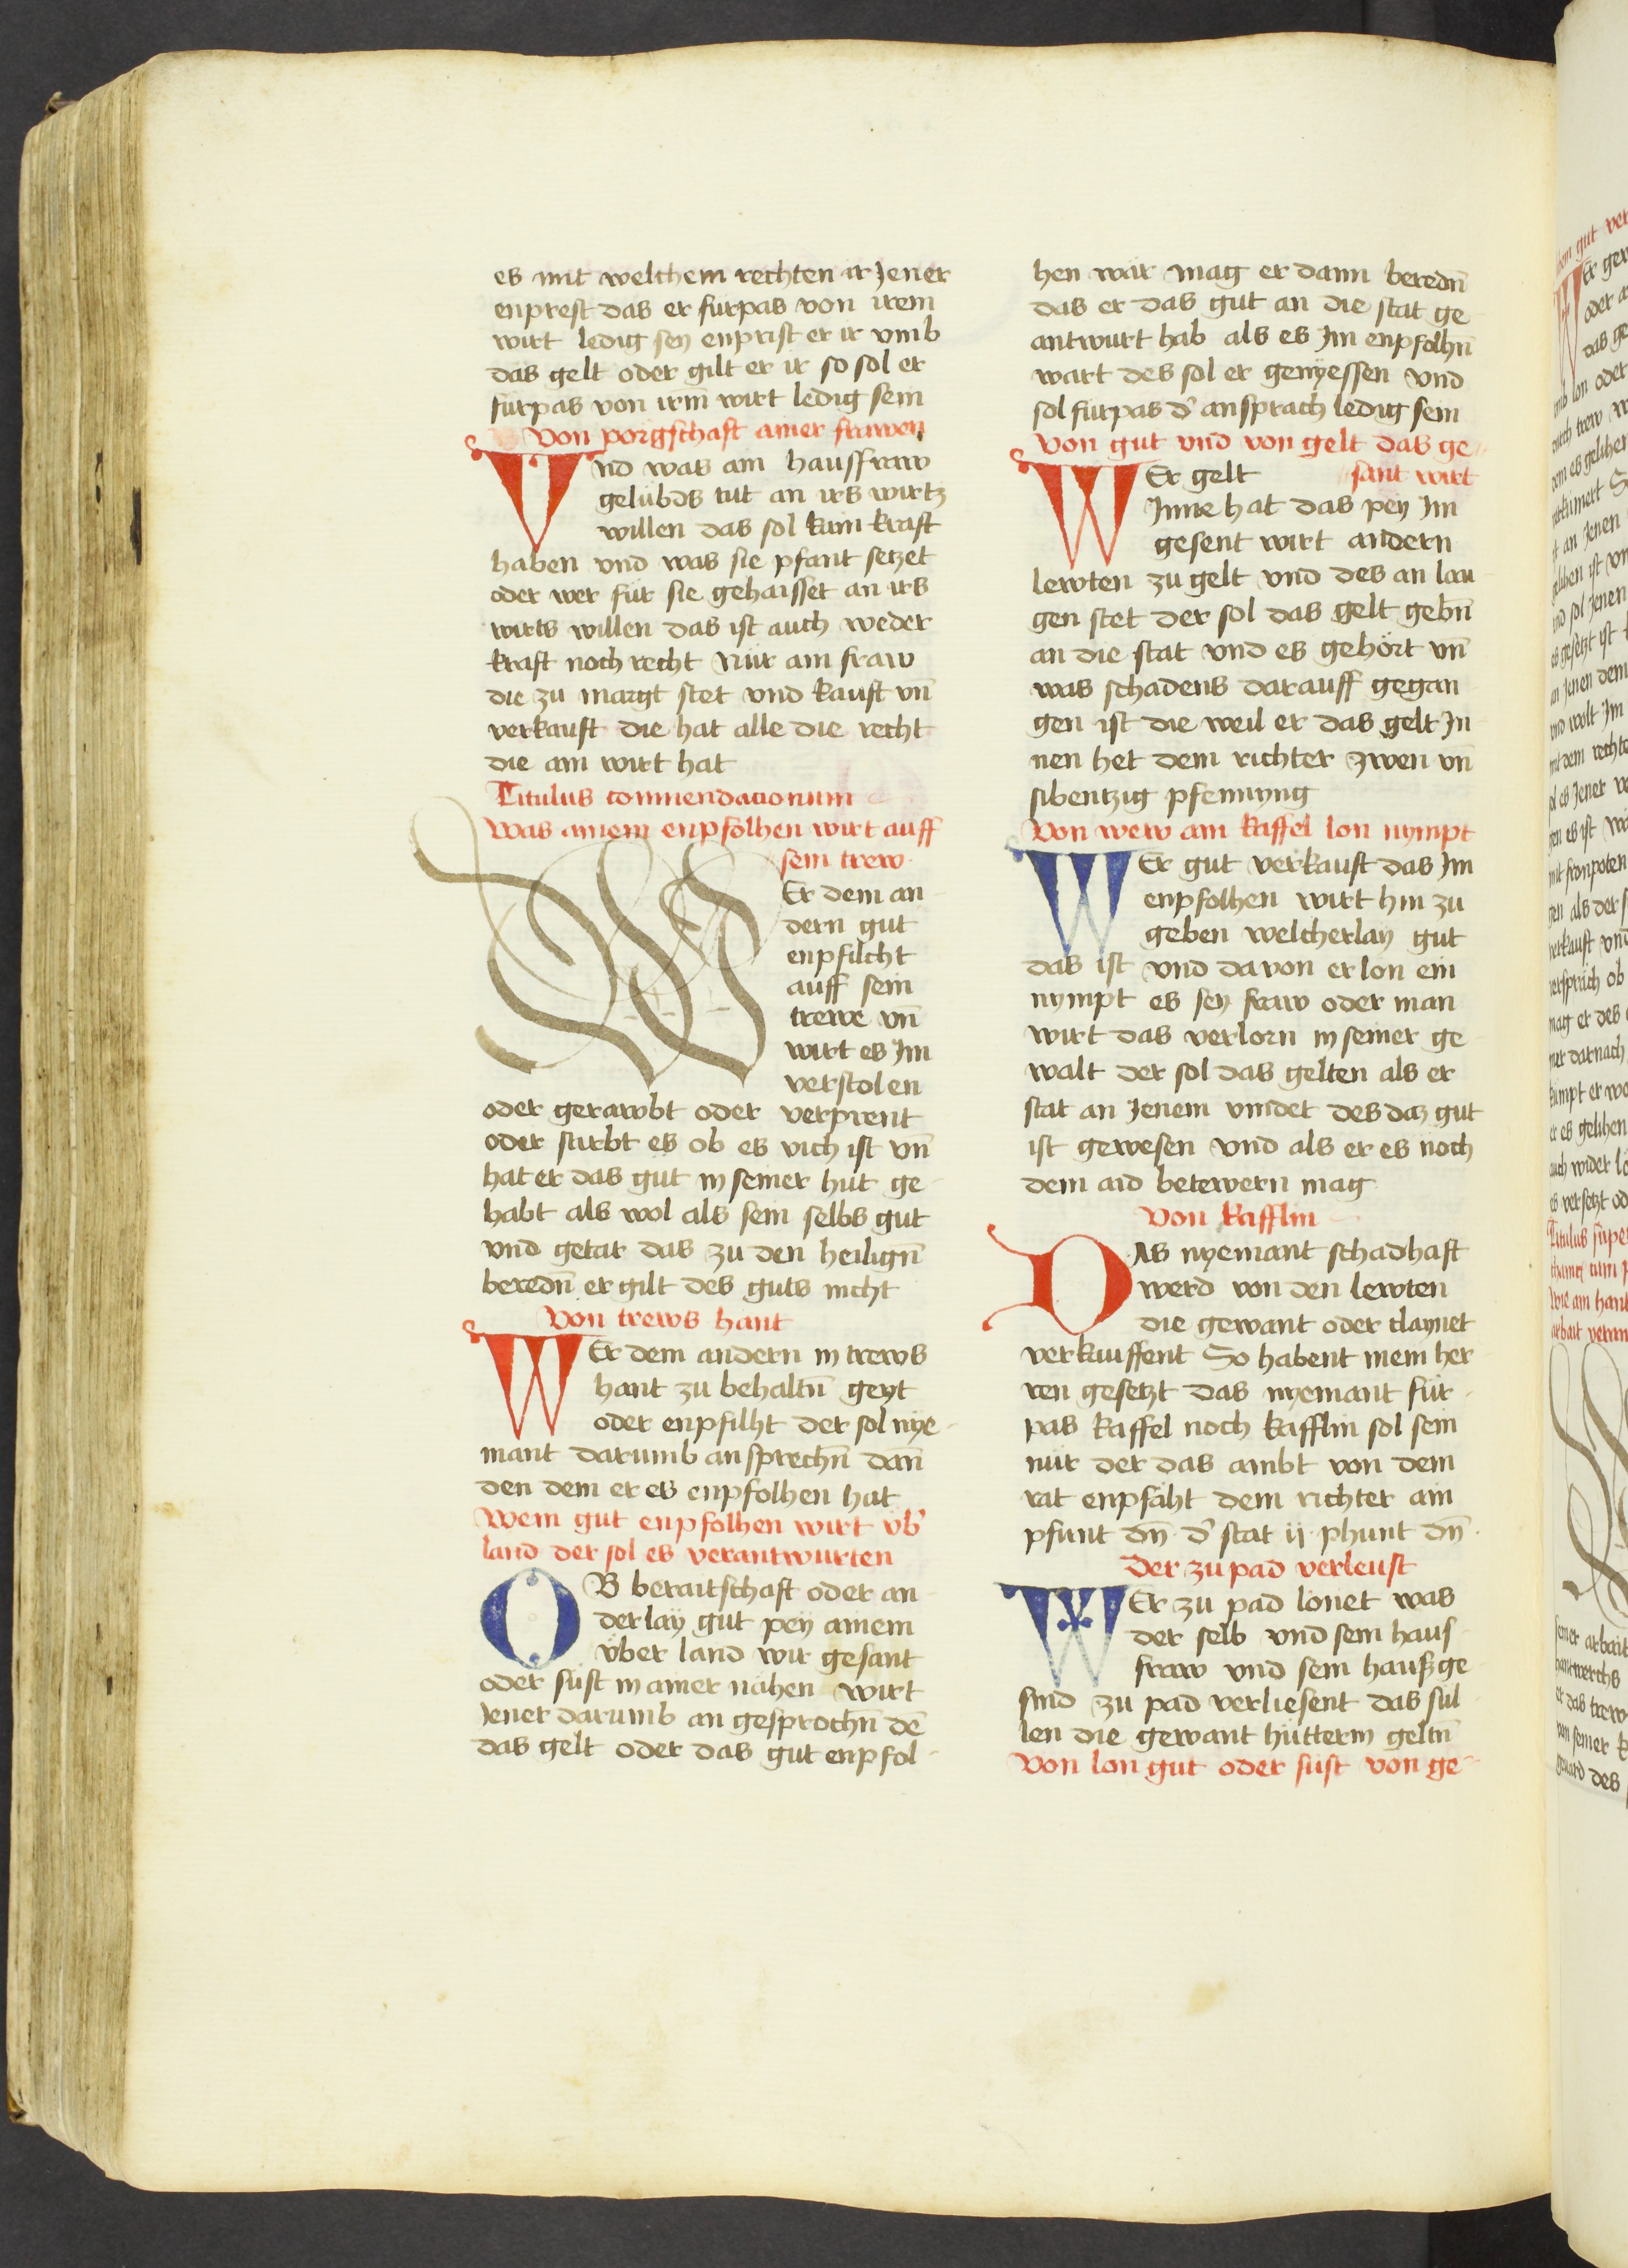 es mit welchem rechten ir Jener
enprest das er furpas von irem
wirt ledig sey enprist er ir vmb
das gelt oder gilt er ir so sol er
furpas von irm wirt ledig sein
Von porgschaft ainer frawen
Vnd was ain hausfraw
gelubds tut an irs wirtz
willen das sol kain kraft
haben vnd was sie pfant setzet
oder wer für sie gehaisset an irs
wirts willen das ist auch weder
kraft noch recht Nür ain fraw
die zu margt stet vnd kauft vn̄
verkauft die hat alle die recht
die ain wirt hat
Titulus commendacionum
Was ainem enpfolhen wirt auff
sein trew
WEr dem an
dern gut
enpfilcht
auff sein
trewe vn̄
wirt es Im
verstolen
oder gerawbt oder verprent
oder stirbt es ob es vich ist vn̄
hat er das gut in seiner hut ge
habt als wol als sein selbs gut
vnd getar das zu den heilign̄
beredn̄ er gilt des guts nicht
Von trews hant
WEr dem andern in trews
hant zu behaltn̄ geyt
oder enpfilht der sol nye
mant darumb an sprechn̄ dan̄
den dem er es enpfolhen hat
Wem gut enpfolhen wirt vb᾽
land der sol es verantwurten
OB beraitschaft oder an
derlay gut pey ainem
vber land wir gesant
oder süst in ainer nähen wirt
Jener darumb an gesprochn̄ dē
das gelt oder das gut enpfol
hen wär mag er dann beredn̄
das er das gut an die stat ge
antwurt hab als es Im enpfolhn̄
wart des sol er genyessen vnd
sol fürpas d᾽ ansprach ledig sein
Von gut vnd von gelt das ge
sant wirt
WEr gelt
Inne hat das pey Im
gesent wirt andern
lewten zu gelt vnd des an lau
gen stet der sol das gelt gebn̄
an die stat vnd es gehört vn̄
was schadens darauff gegan
gen ist die weil er das gelt In
nen het dem richter zwen vn̄
sibentzig pfennyng
Von wew ain kaffel lon nympt
WEr gut verkauft das Im
enpfolhen wirt hin zu
geben welcherlay gut
das ist vnd davon er lon ein
nympt es sey fraw oder man
wirt das verlorn in seiner ge
walt der sol das gelten als er
stat an Jenem vindet des daz gut
ist gewesen vnd als er es noch
dem aid betewern mag
Von kafflin
DAs nyemant schadhaft
werd von den lewten
die gewant oder claynet
verkauffent So habent mein her
ren gesetzt das nyemant für
pas kaffel noch kafflin sol sein
nür der das ambt von dem
rat enpfäht dem richter ain
pfunt dn̄ · d᾽ stat ij · phunt dn̄ ·
Der zu pad verleust
WEr zu pad lonet was
der selb vnd sein haus
fraw vnd sein haußge
sind zu pad verliesent das sül
len die gewant hütterin geltn̄
Von lon gut oder süst von ge